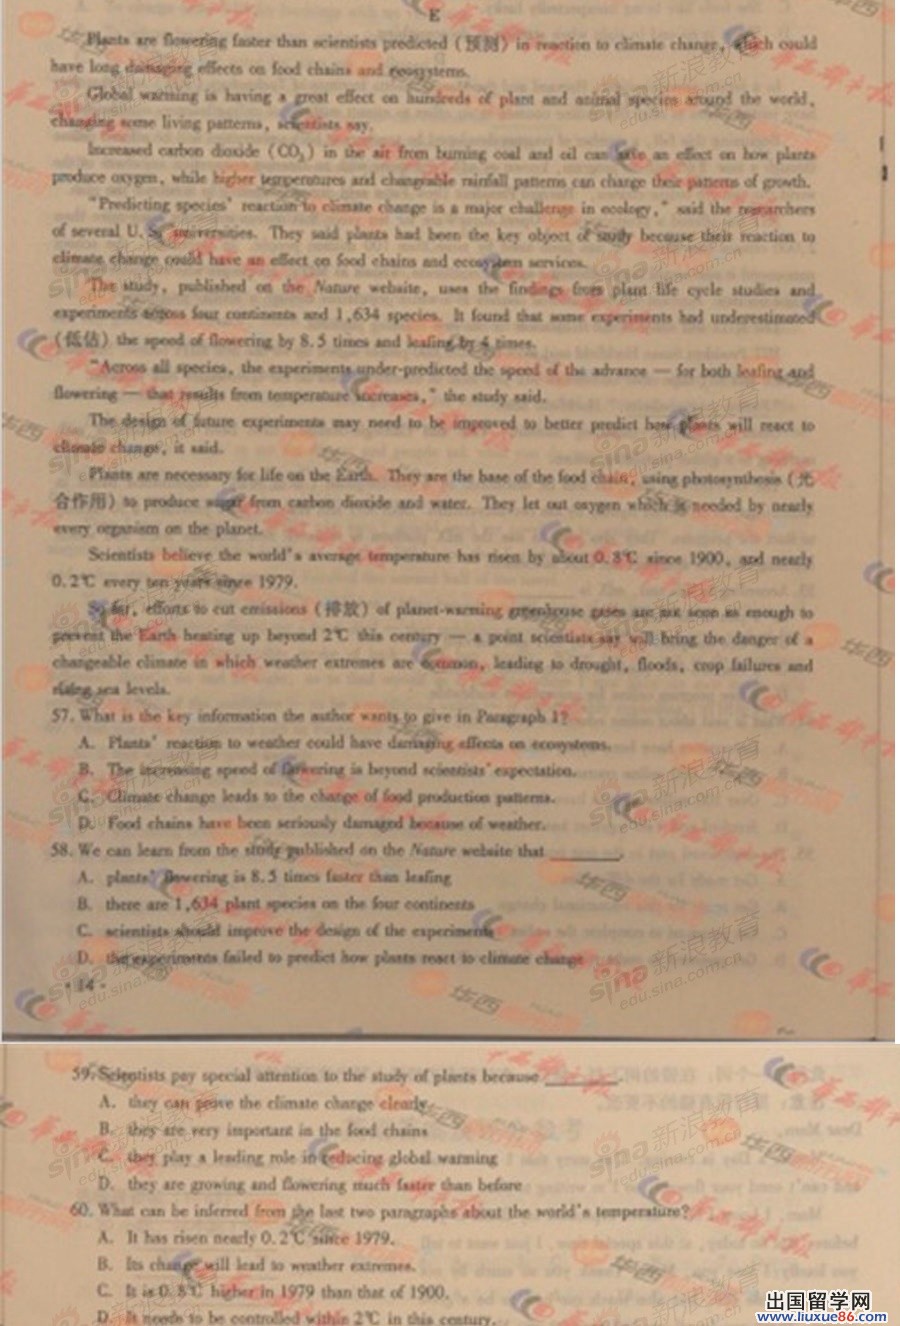 E
Plants are flowering faster than scientists predicted (预测) in reaction to climate change, which could
have long damaging effects on food chains and ecosystems.
Global warming is having a great effect on hundreds of plant and animal species around the world,
changing some living patterns, scientists say.
Increased carbon dioxide (CO₂) in the air from burning coal and oil can have an effect on how plants
produce oxygen, while higher temperatures and changeable rainfall patterns can change their patterns of growth.
"Predicting species' reaction to climate change is a major challenge in ecology," said the researchers
of several U.S. universities. They said plants had been the key object of study because their reaction to
climate change could have an effect on food chains and ecosystem services.
The study, published on the Nature website, uses the findings from plant life cycle studies and
experiments across four continents and 1,634 species. It found that some experiments had underestimated
(低估) the speed of flowering by 8.5 times and leafing by 4 times.
"Across all species, the experiments under-predicted the speed of the advance — for both leafing and
flowering — that results from temperature increases," the study said.
The design of future experiments may need to be improved to better predict how plants will react to
climate change, it said.
Plants are necessary for life on the Earth. They are the base of the food chain, using photosynthesis (光
合作用) to produce sugar from carbon dioxide and water. They let out oxygen which is needed by nearly
every organism on the planet.
Scientists believe the world's average temperature has risen by about 0.8℃ since 1900, and nearly
0.2℃ every ten years since 1979.
So far, efforts to cut emissions (排放) of planet-warming greenhouse gases are not seen as enough to
prevent the Earth heating up beyond 2℃ this century — a point scientists say will bring the danger of a
changeable climate in which weather extremes are common, leading to drought, floods, crop failures and
rising sea levels.
57. What is the key information the author wants to give in Paragraph 1?
A. Plants' reaction to weather could have damaging effects on ecosystems.
B. The increasing speed of flowering is beyond scientists' expectation.
C. Climate change leads to the change of food production patterns.
D. Food chains have been seriously damaged because of weather.
58. We can learn from the study published on the Nature website that ______.
A. plants' flowering is 8.5 times faster than leafing
B. there are 1,634 plant species on the four continents
C. scientists should improve the design of the experiments
D. the experiments failed to predict how plants react to climate change
· 14 ·
59. Scientists pay special attention to the study of plants because ______.
A. they can prove the climate change clearly
B. they are very important in the food chains
C. they play a leading role in reducing global warming
D. they are growing and flowering much faster than before
60. What can be inferred from the last two paragraphs about the world's temperature?
A. It has risen nearly 0.2℃ since 1979.
B. Its change will lead to weather extremes.
C. It is 0.8℃ higher in 1979 than that of 1900.
D. It needs to be controlled within 2℃ in this century.
sina新浪教育
edu.sina.com.cn
华西都市报
出国留学网
www.liuxue86.com